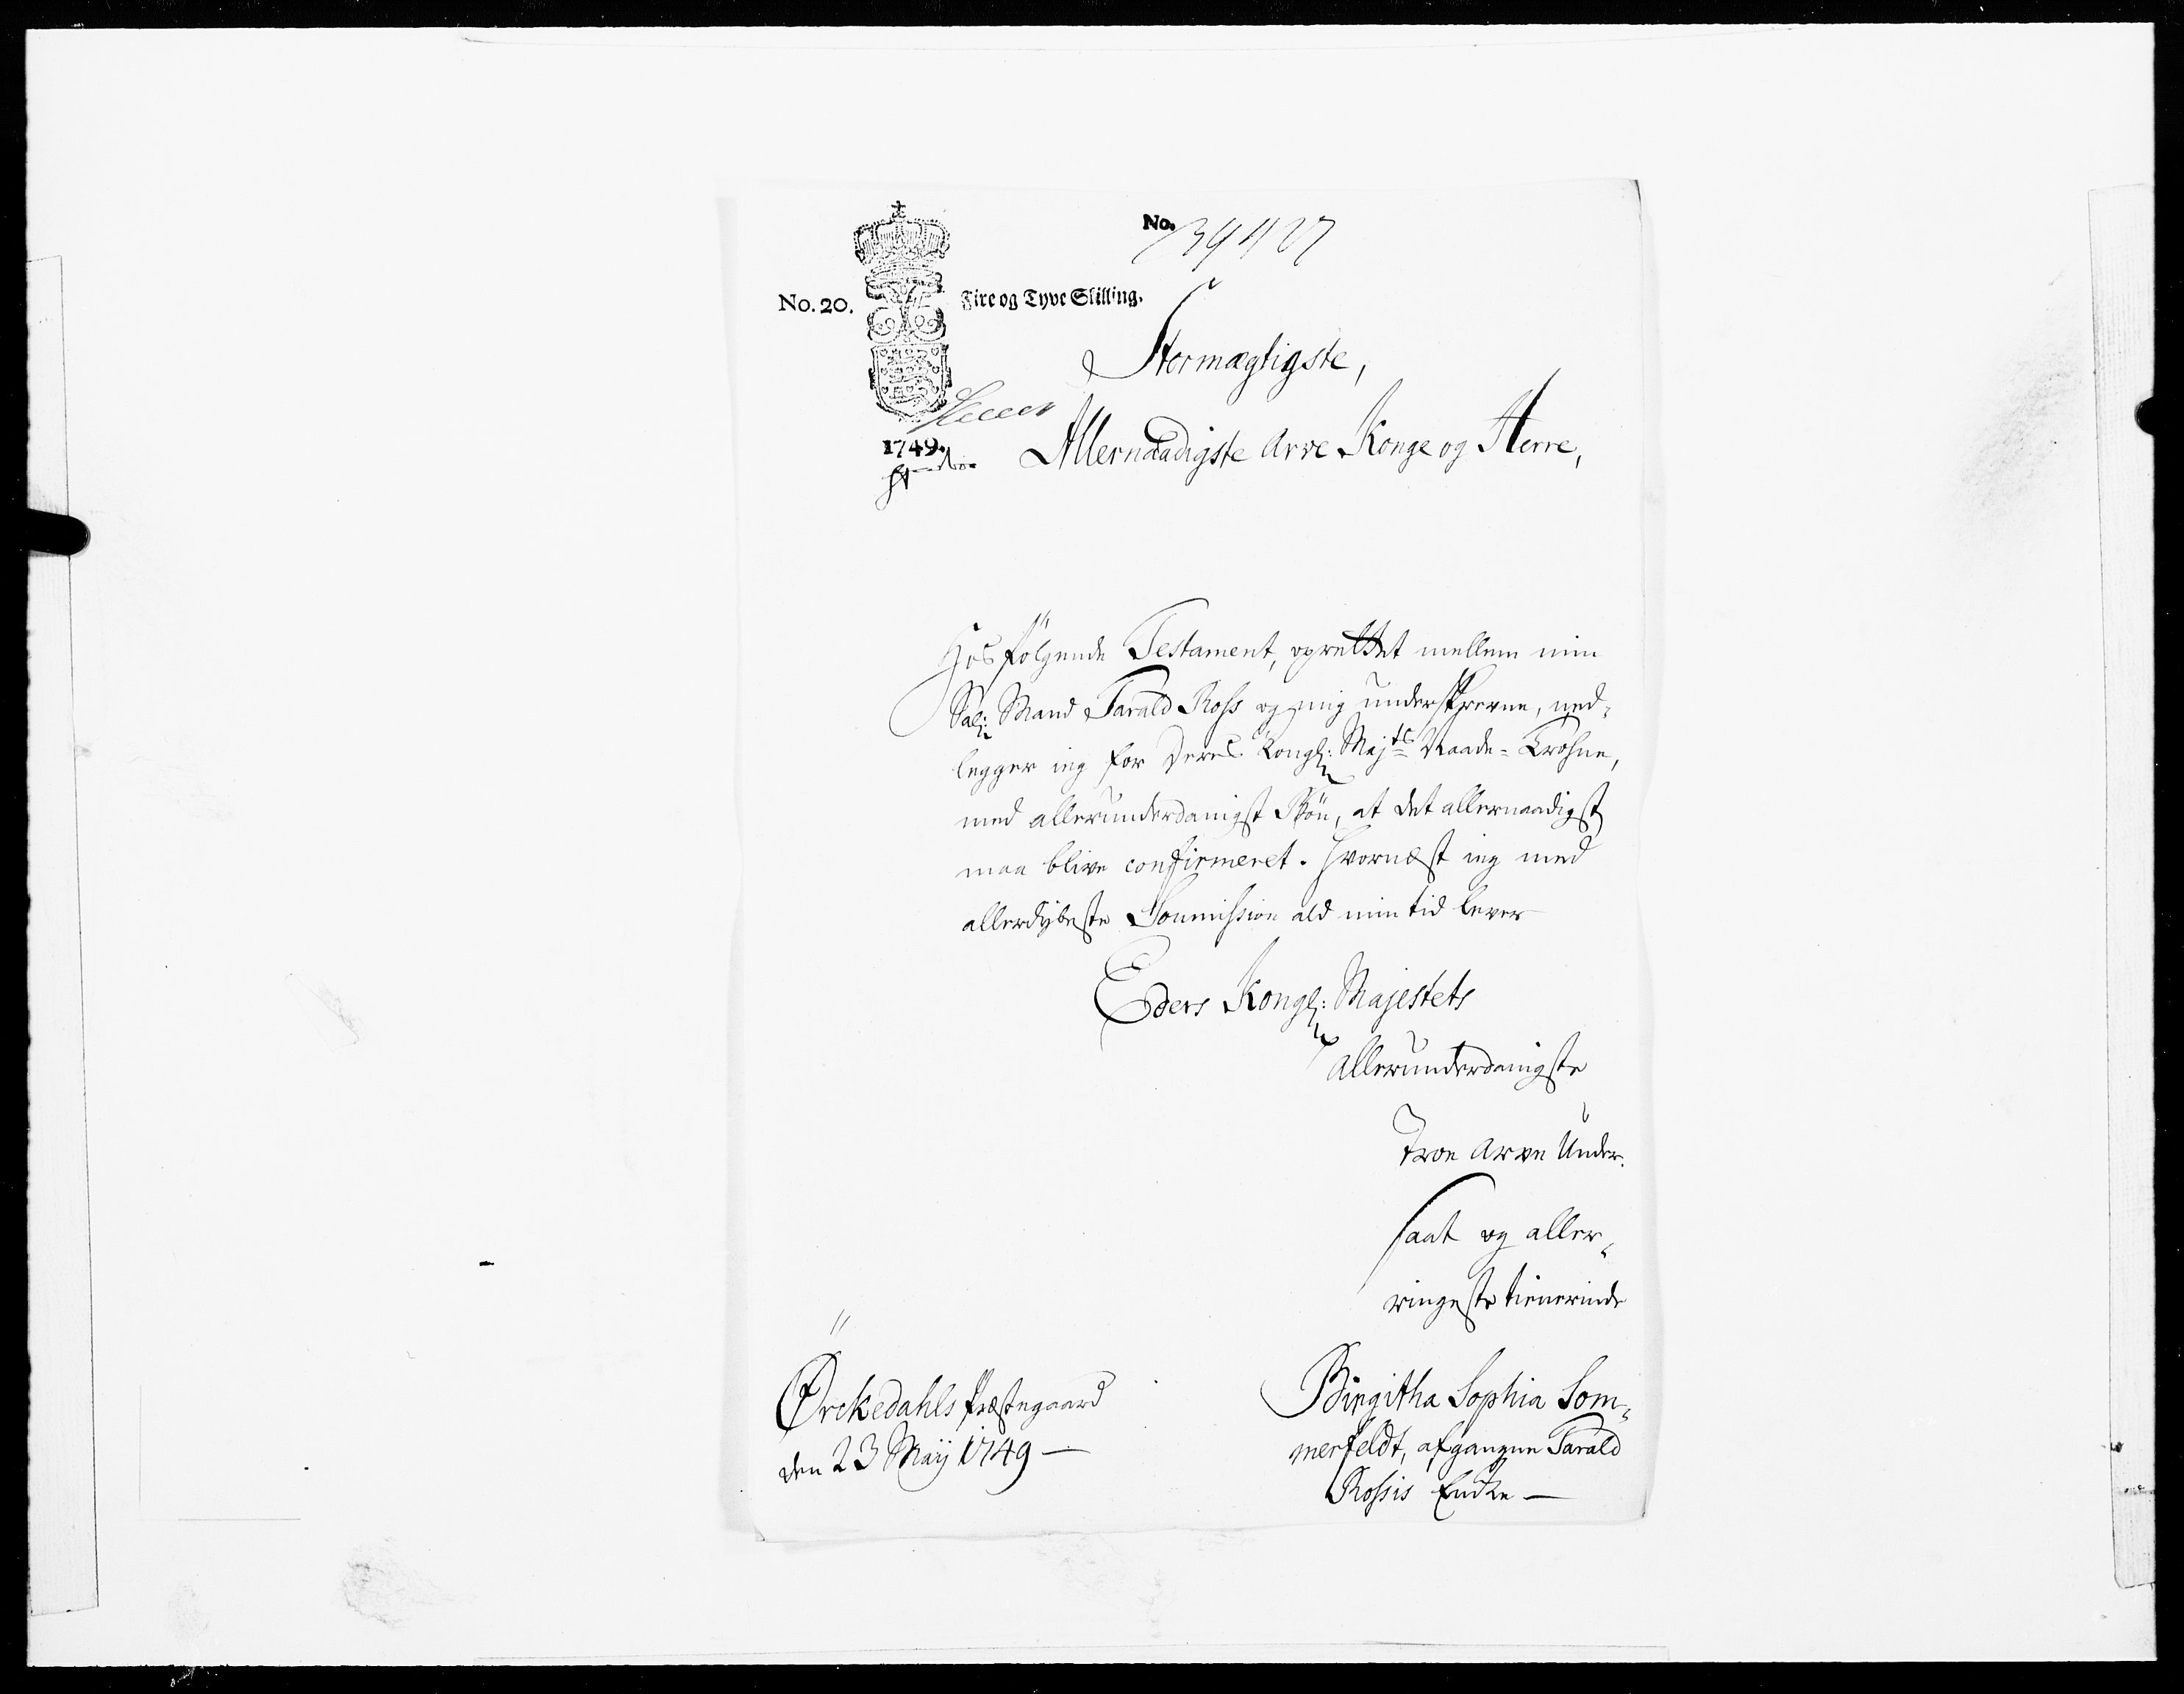 No. 39427
No. 20. Fire og Tyve Skilling.
Stormægtigste,
1749. Allernaadigste Arve Konge og Herre,
Hosfølgende Testament, oprettet mellem min
Sal: Mand Tarald Ross og mig underskrevne, ned-
legger ieg for Deres Kongl: Majts Naade-Trohne,
med allerunderdanigst Bøn, at det allernaadigst
maa blive confirmeret. Hvornæst ieg med
allerdybeste Soumission ald min tid lever
Eders Kongl: Majestets
allerunderdanigste
troe arve Under-
saat og aller-
ringeste tienerinde
Ørckedahls Præstegaard
den 23 Maij 1749 —
Birgitha Sophia Som-
merfeldt, afgangne Tarald
Rossis Encke —